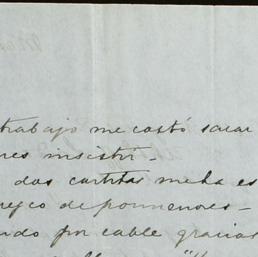 trabajo me costó sacar
insistir.
dos cartitas me ha es
de pormenores.
ndo por cable gracias